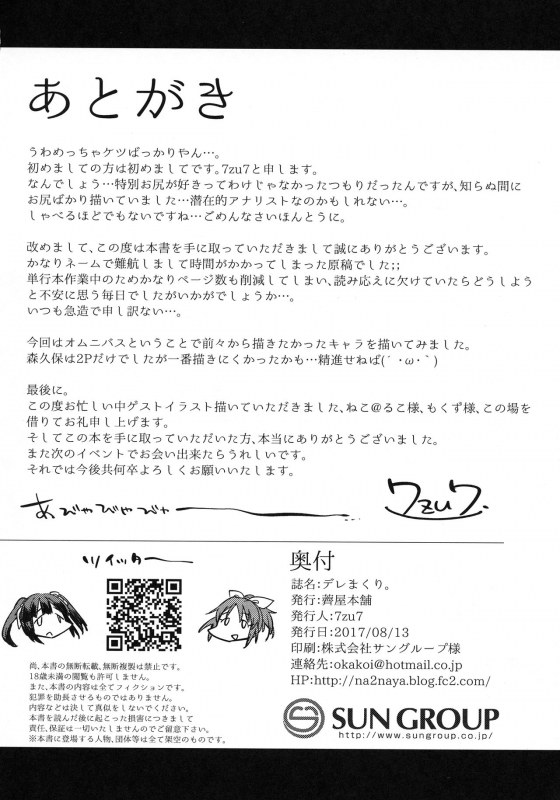 あとがき
うわめっちゃケツばっかりやん…。
初めましての方は初めましてです。7zu7と申します。
なんでしょう…特別お尻が好きってわけじゃなかったつもりだったんですが、知らぬ間に
お尻ばかり描いていました…潜在的アナリストなのかもしれない…。
しゃべるほどでもないですね…ごめんなさいほんとうに。
改めまして、この度は本書を手に取っていただきまして誠にありがとうございます。
かなりネームで難航しまして時間がかかってしまった原稿でした;;
単行本作業中のためかなりページ数も削減してしまい、読み応えに欠けていたらどうしよう
と不安に思う毎日でしたがいかがでしょうか…。
いつも急造で申し訳ない…。
今回はオムニバスということで前々から描きたかったキャラを描いてみました。
森久保は2Pだけでしたが一番描きにくかったかも…精進せねば(´・ω・`)
最後に。
この度お忙しい中ゲストイラスト描いていただきました、ねこ@るこ様、もくず様、この場を
借りてお礼申し上げます。
そしてこの本を手に取っていただいた方、本当にありがとうございました。
また次のイベントでお会い出来たらうれしいです。
それでは今後共何卒よろしくお願いいたします。
あびゃびゃびゃー
7zu7.
ツイッター
尚、本書の無断転載、無断複製は禁止です。
18歳未満の閲覧も許可しません。
また、本書の内容は全てフィクションです。
犯罪を助長させるものではありません。
内容などは決して真似をしないでください。
本書を読んだ後に起こった損害につきまして
責任、保証は一切いたしませんのでご留意下さい。
※本書に登場する人物、団体等は全て架空のものです。
奥付
誌名:デレまくり。
発行:薺屋本舗
発行人:7zu7
発行日:2017/08/13
印刷:株式会社サングループ様
連絡先:okakoi@hotmail.co.jp
HP:http://na2naya.blog.fc2.com/
SUN GROUP
http://www.sungroup.co.jp/